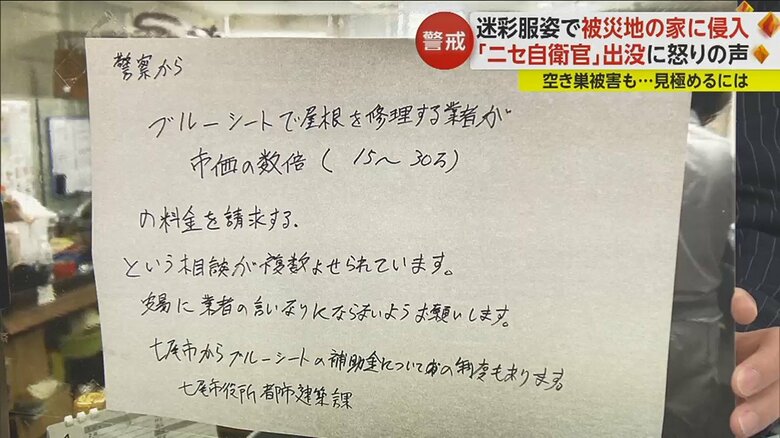 警戒
迷彩服姿で被災地の家に侵入
「ニセ自衛官」出没に怒りの声
空き巣被害も…見極めるには
警察から
ブルーシートで屋根を修理する業者が
市価の数倍(15〜30万)
の料金を請求する.
という相談が複数よせられています。
安易に業者の言いなりにならないようお願いします。
七尾市からブルーシートの補助金について の制度もあります。
七尾市役所都市建築課